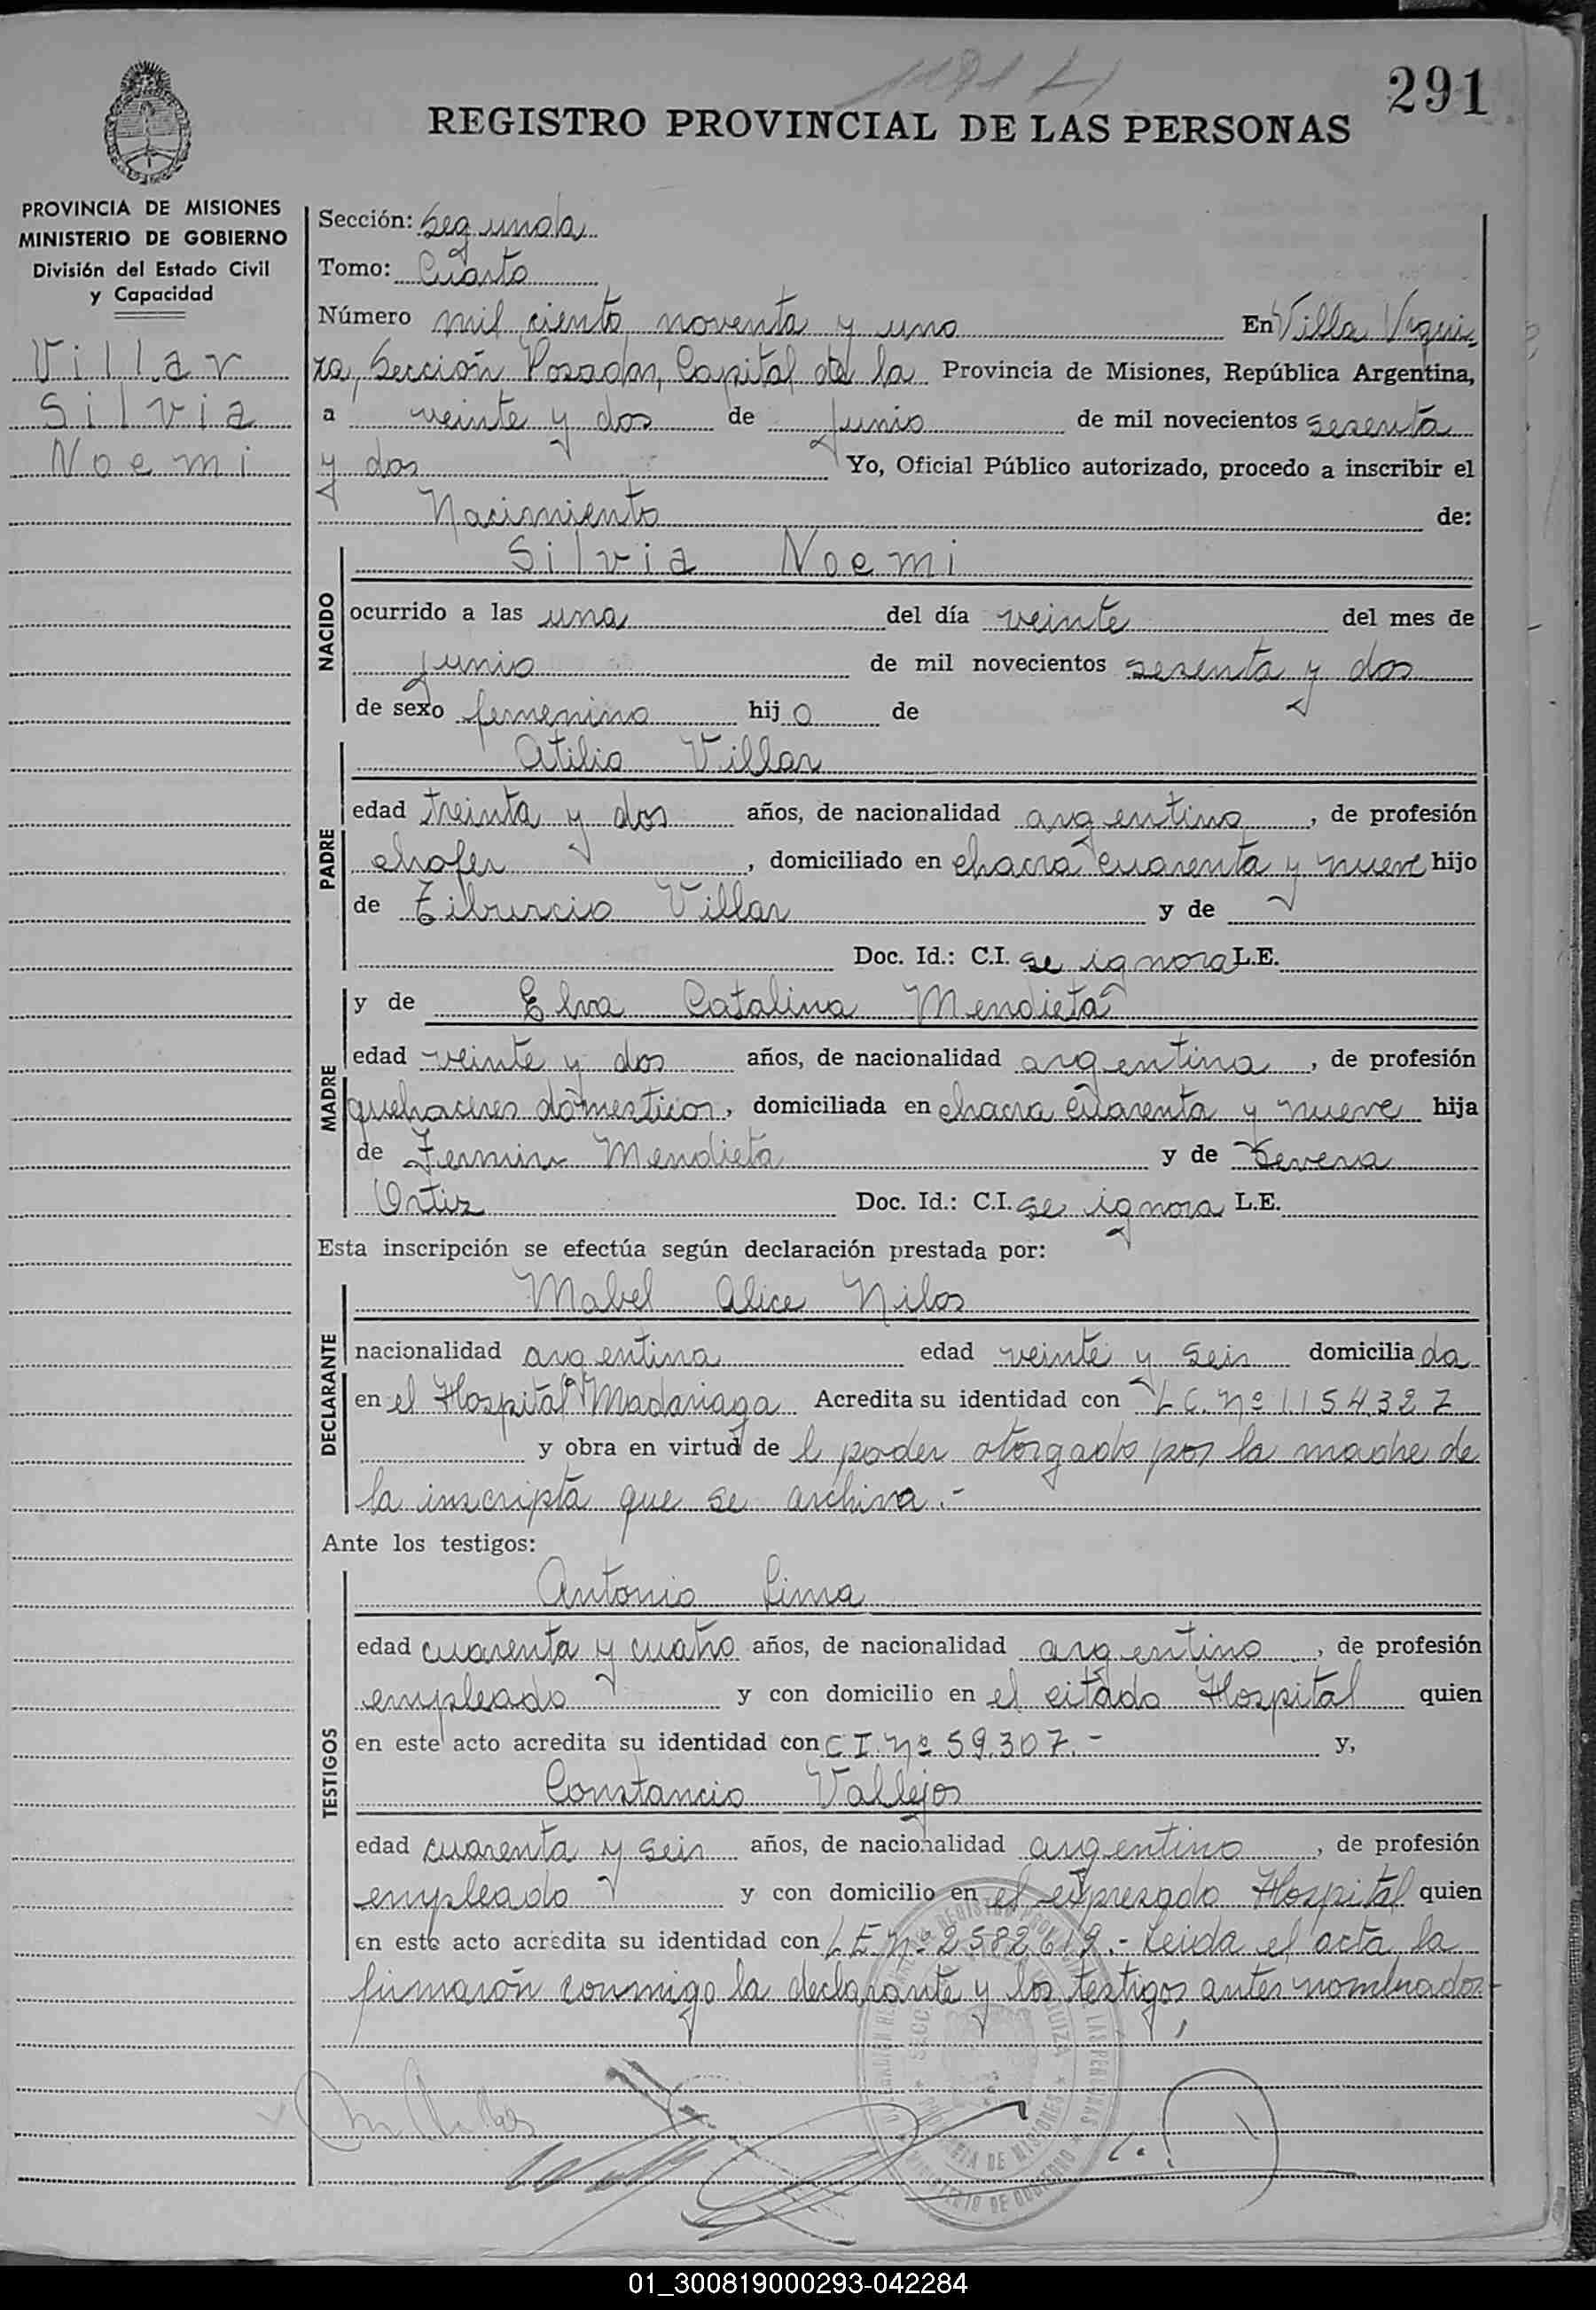 291
REGISTRO PROVINCIAL DE LAS PERSONAS
PROVINCIA DE MISIONES
MINISTERIO DE GOBIERNO
División del Estado Civil
y Capacidad
Villar
Silvia
Noemi
Sección: Segunda
Tomo: Cuarto
Número mil ciento noventa y uno En Villa Urqui-
za, Sección Posadas, Capital de la Provincia de Misiones, República Argentina,
a veinte y dos de junio de mil novecientos sesenta
y dos Yo, Oficial Público autorizado, procedo a inscribir el
Nacimiento de:
Silvia Noemi
NACIDO
ocurrido a las una del día veinte del mes de
junio de mil novecientos sesenta y dos
de sexo femenino hij o de
Atilio Villar
PADRE
edad treinta y dos años, de nacionalidad argentino, de profesión
chofer, domiciliado en chacra cuarenta y nueve hijo
de Tiburcio Villar y de
Doc. Id.: C.I. se ignora L.E.
y de Elva Catalina Mendieta
MADRE
edad veinte y dos años, de nacionalidad argentina, de profesión
quehaceres domesticos, domiciliada en chacra cuarenta y nueve hija
de Fermin Mendieta y de Severa
Ortiz Doc. Id.: C.I. se ignora L.E.
Esta inscripción se efectúa según declaración prestada por:
Mabel Alice Nilos
DECLARANTE
nacionalidad argentina edad veinte y seis domicilia da
en el Hospital Madariaga Acredita su identidad con L C. Nº 1154327
y obra en virtud de l poder otorgado por la madre de
la inscripta que se archiva.-
Ante los testigos:
Antonio Lima
TESTIGOS
edad cuarenta y cuatro años, de nacionalidad argentino, de profesión
empleado y con domicilio en el citado Hospital quien
en este acto acredita su identidad con C I. Nº 59.307.- y,
Constancio Vallejos
edad cuarenta y seis años, de nacionalidad argentino, de profesión
empleado y con domicilio en el expresado Hospital quien
en este acto acredita su identidad con L E. Nº 2582619.- Leida el acta la
firmarón conmigo la declarante y los testigos antes nombrados-
01_300819000293-042284